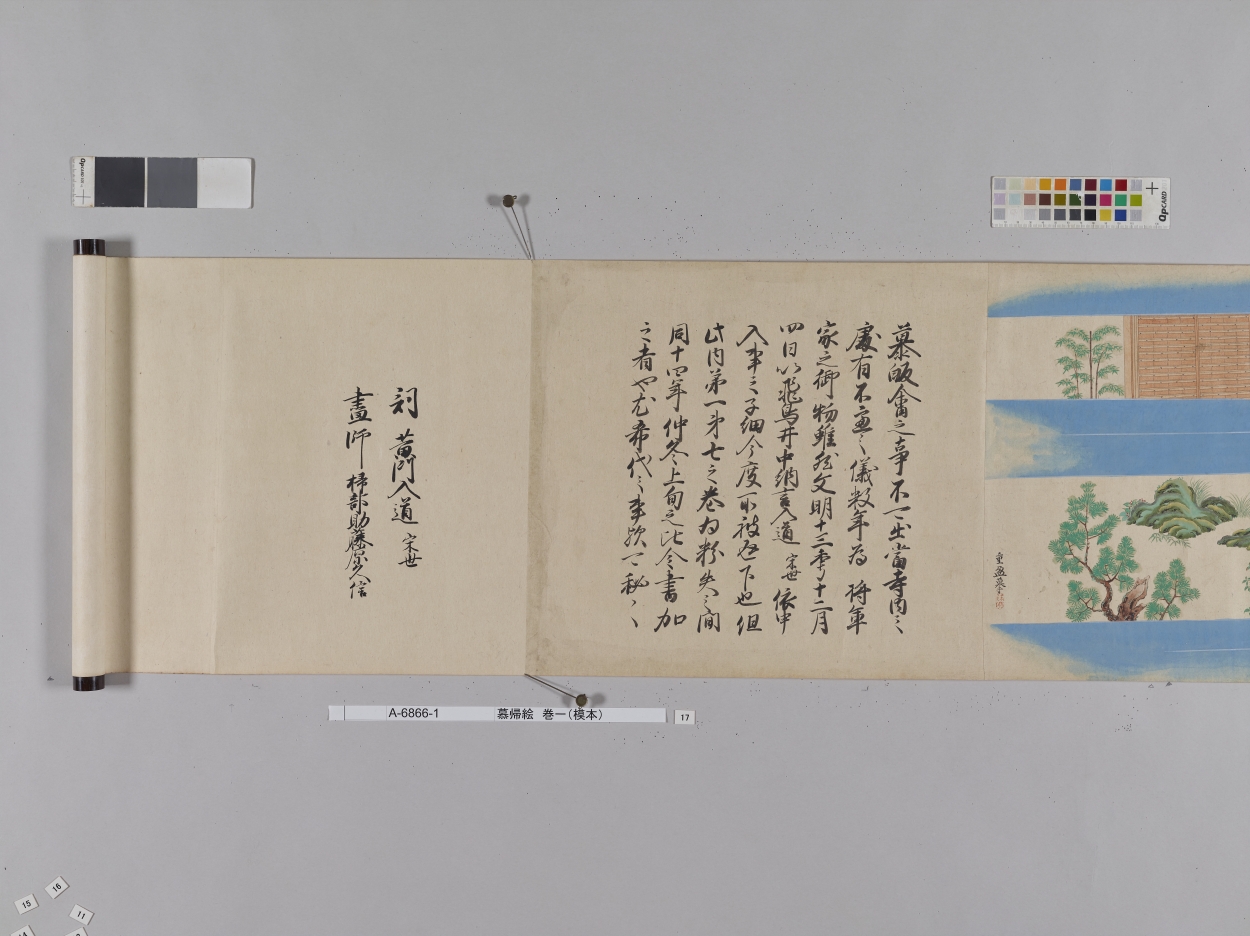 慕皈繪之事不可出當寺内之
處有不慮之儀數年為將軍
家之御物雖然文明十三季十二月
四日以飛鳥井中納言入道宋世依申
入事之子細今度所被返下也但
此内第一第七之巻為粉失之間
同十四年仲冬上旬之比令書加
之者也尤希代之事歟可秘々
詞 黄門入道宋世
畫師 掃部助藤原久信
A-6866-1 慕帰絵 巻一(模本)
17
16
15
11